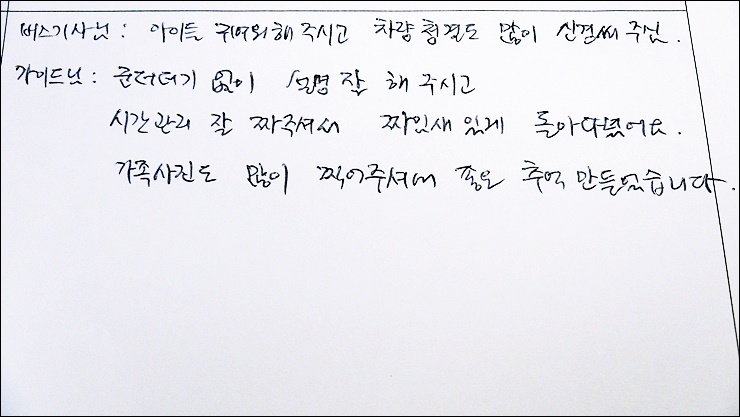 버스기사님 : 아이들 귀여워해 주시고 차량청결도 많이 신경써 주심.
가이드님 : 군더더기 없이 설명 잘 해 주시고
시간관리 잘 짜주셔서 짜임새 있게 돌아다녔어요.
가족사진도 많이 찍어주셔서 좋은 추억 만들었습니다.